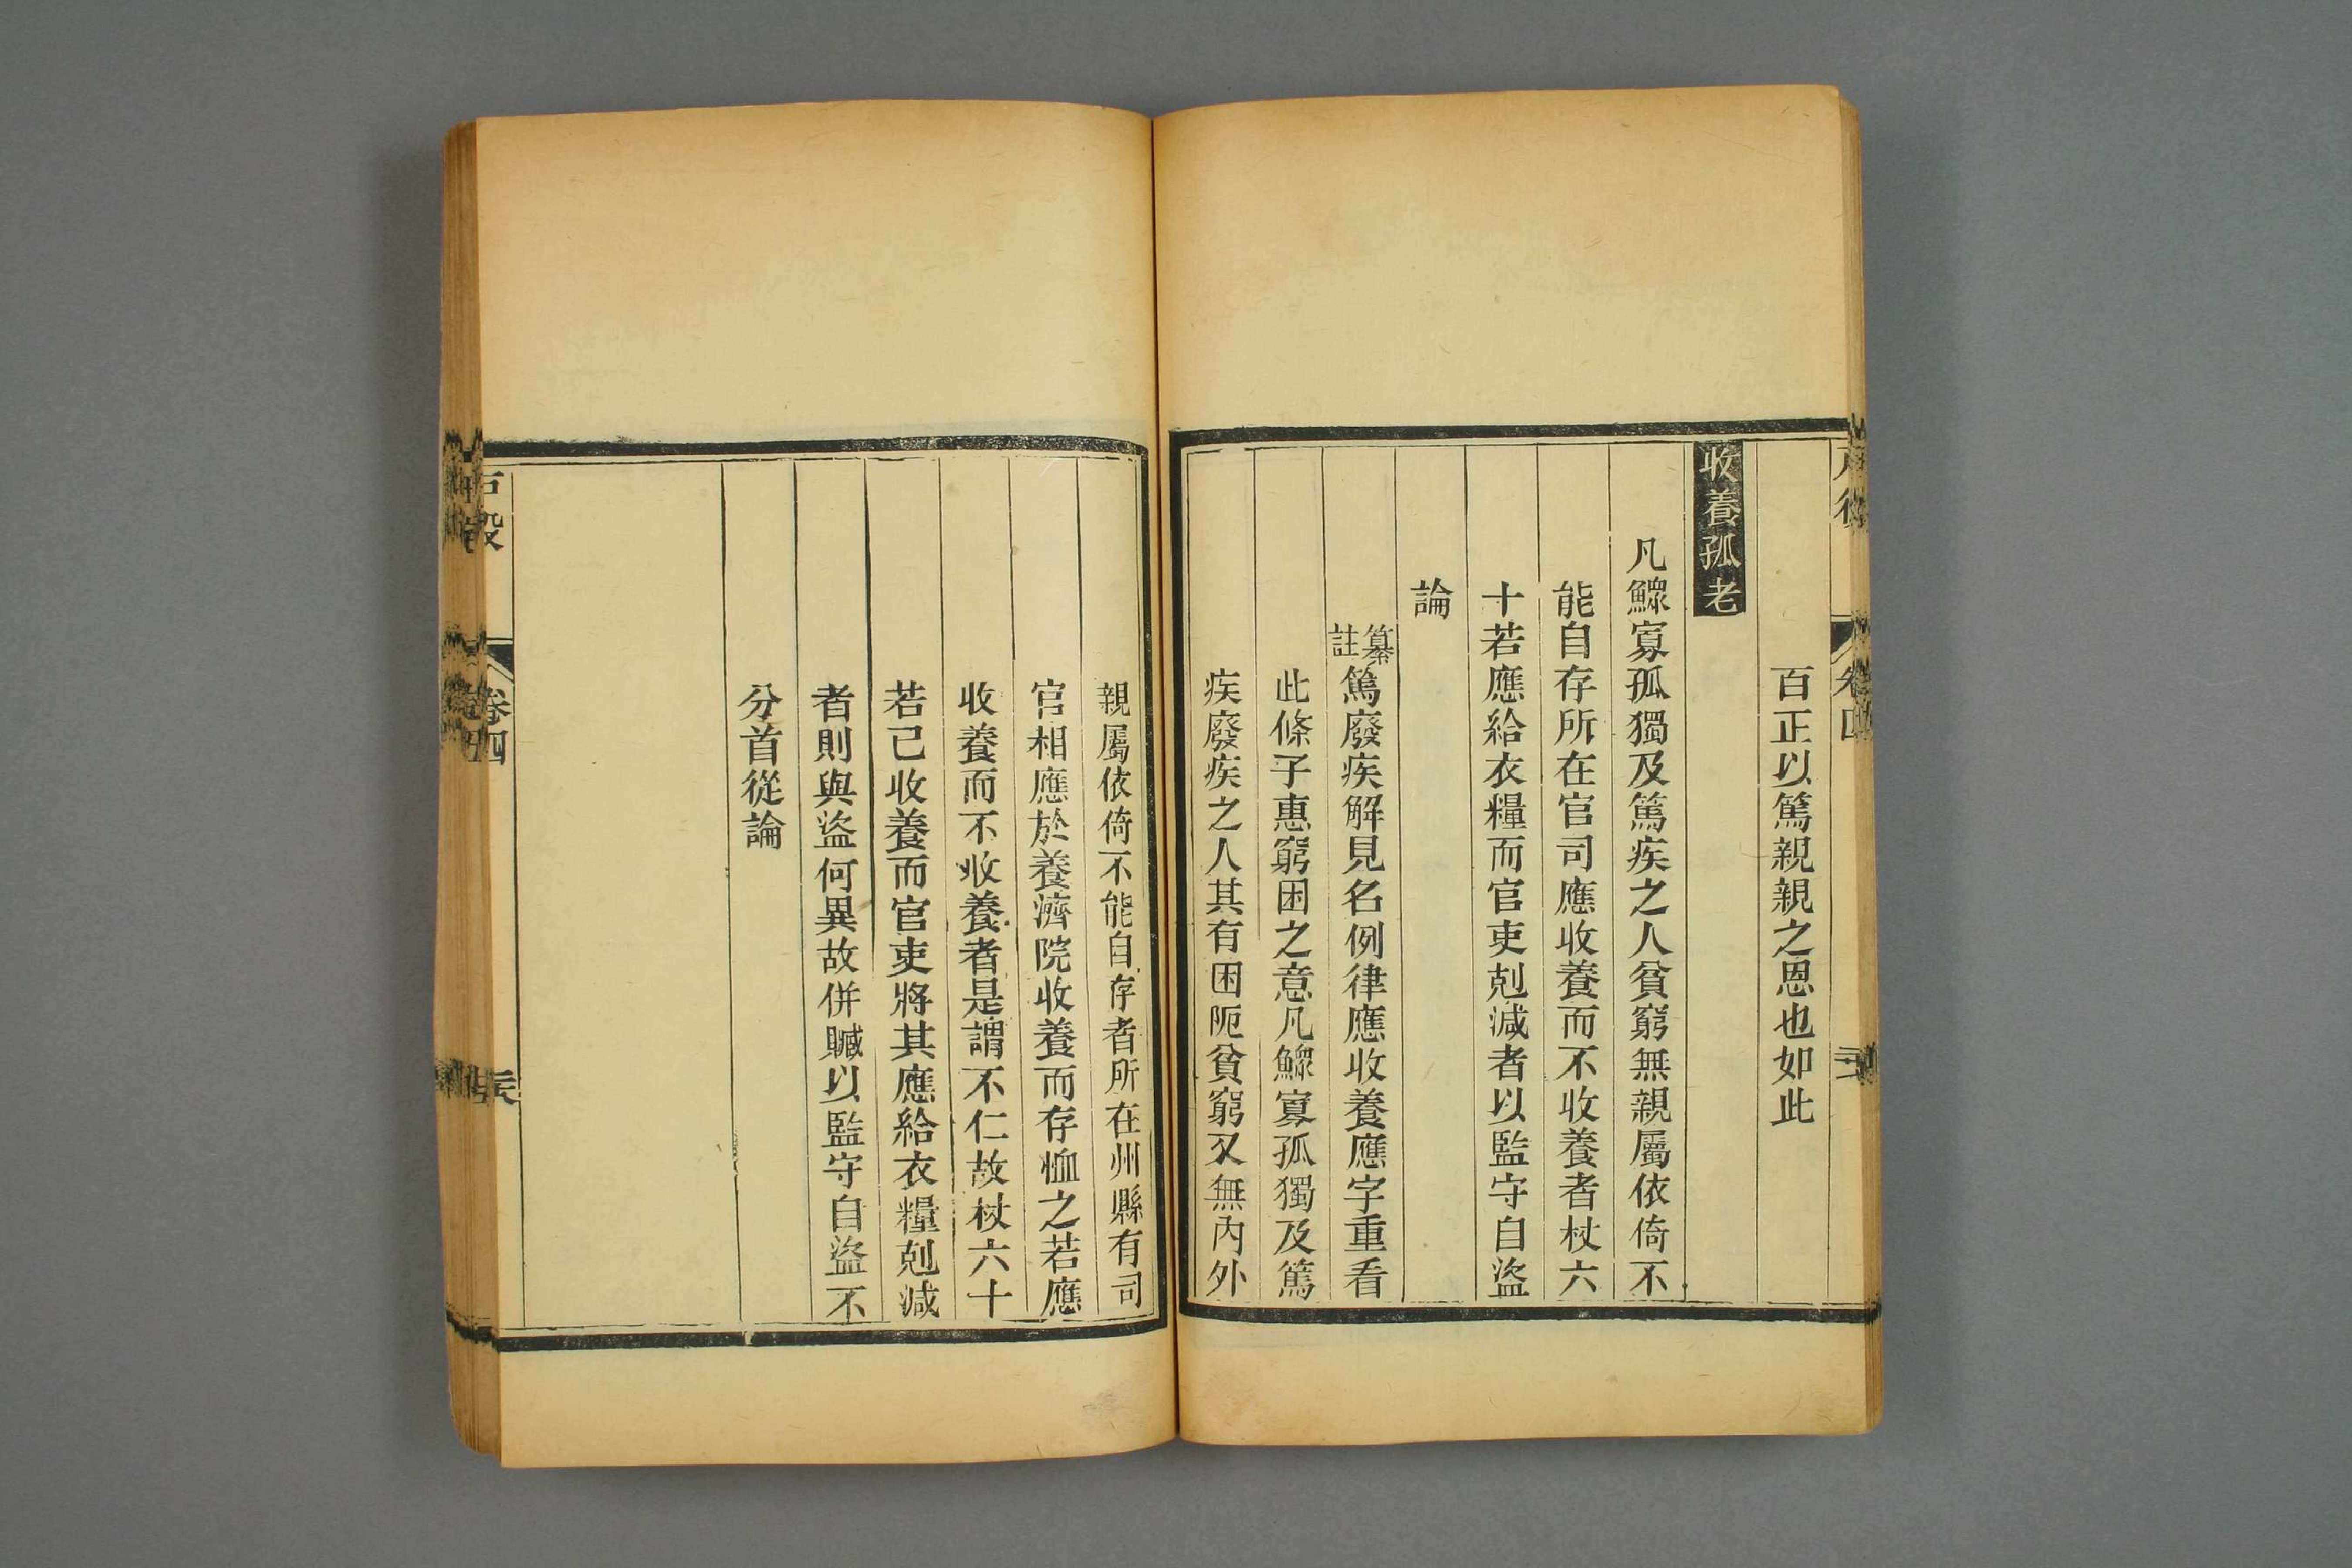 百正以篤親親之恩也如此
收養孤老
凡鰥寡孤獨及篤疾之人貧窮無親屬依倚不
能自存所在官司應收養而不收養者杖六
十若應給衣糧而官吏剋減者以監守自盜
論
纂註篤廢疾解見名例律應收養應字重看
此條子惠窮困之意凡鰥寡孤獨及篤
疾廢疾之人其有困阨貧窮又無內外
親屬依倚不能自存者所在州縣有司
官相應於養濟院收養而存恤之若應
收養而不收養者是謂不仁故杖六十
若已收養而官吏將其應給衣糧剋減
者則與盜何異故併贓以監守自盜不
分首從論
戶役
卷四